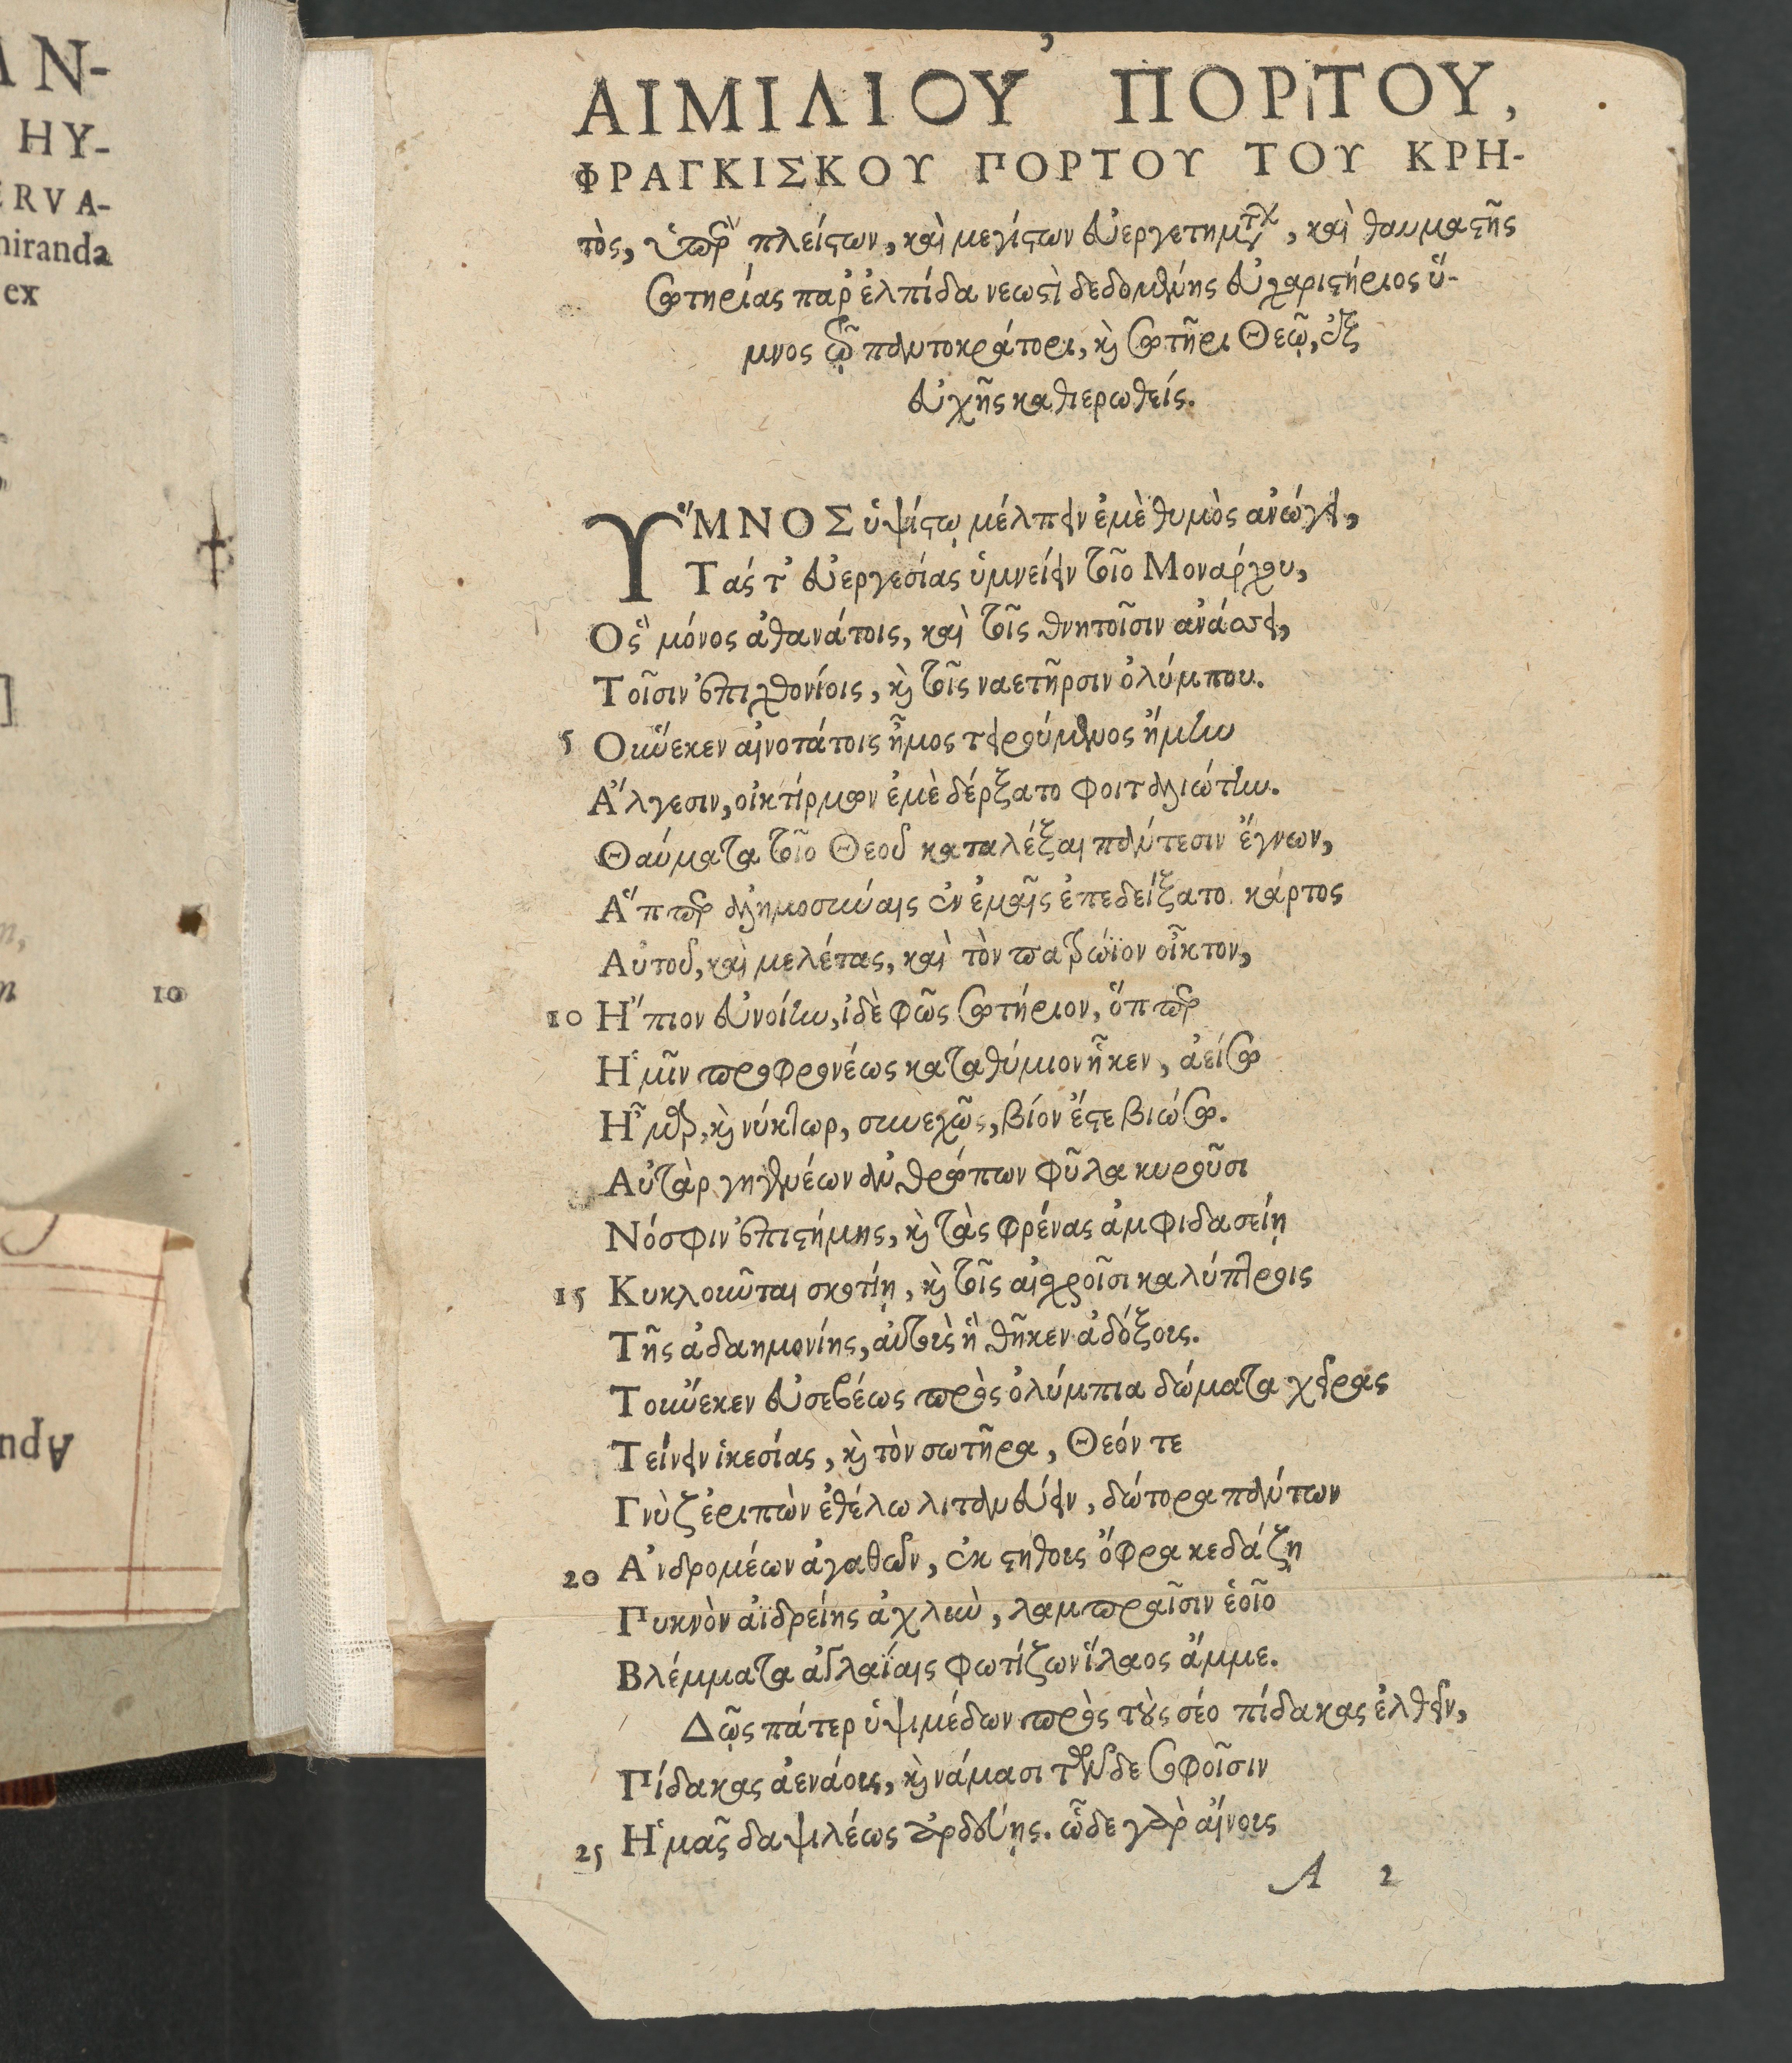 AN-
HY-
ERVA-
miranda
ex
]
m,
n 10
Apud
ΑΙΜΙΛΙΟΥ ΠΟΡΤΟΥ,
ΦΡΑΓΚΙΣΚΟΥ ΠΟΡΤΟΥ ΤΟΥ ΚΡΗ-
τὸς, ὑπὲρ πλείστων, καὶ μεγίστων εὐεργετημάτων, καὶ θαυμαστῆς
σωτηρίας παρ' ἐλπίδα νεωστὶ δεδομένης εὐχαριστήριος ὕ-
μνος τῷ παντοκράτορι, καὶ σωτῆρι Θεῷ, ἐξ
εὐχῆς καθιερωθείς.
ὝΜΝΟΣ ὑψίστῳ μέλπειν ἐμὲ θυμὸς ἀνώγει,
Τάς τ' εὐεργεσίας ὑμνείειν τοῖο Μονάρχου,
Ὃς μόνος ἀθανάτοις, καὶ τοῖς θνητοῖσιν ἀνάσσει,
Τοῖσιν ἐπιχθονίοις, καὶ τοῖς ναετῆρσιν ὀλύμπου.
5 Οὕνεκεν αἰνοτάτοις ἦμος τειρούμενος ἤμην
Ἄλγεσιν, οἰκτίρμων ἐμὲ δέρξατο φοιταλιώτην.
Θαύματα τοῖο Θεοῦ καταλέξαι πάντεσιν ἔγνων,
Ἅπερ δημοσύναις ἐν ἐμαῖς ἐπεδείξατο κάρτος
Αὐτοῦ, καὶ μελέτας, καὶ τὸν πατρώϊον οἶκτον,
10 Ἤπιον εὐνοίην, ἰδὲ φῶς σωτήριον, ὅπερ
Ἡμῖν προφρονέως καταθύμιον ἧκεν, ἀείσω
Ἦμαρ, καὶ νύκτωρ, συνεχῶς, βίον ἔστε βιώσω.
Αὐτὰρ γηγενέων ἀνθρώπων φῦλα κυροῦσι
Νόσφιν ἐπιστήμης, καὶ τὰς φρένας ἀμφιδασείῃ
15 Κυκλοῦνται σκοτίῃ, καὶ τοῖς αἰσχροῖσι καλύπτροις
Τῆς ἀδαημονίης, αὐτοὺς ἣ θῆκεν ἀδόξους.
Τοὔνεκεν εὐσεβέως πρὸς ὀλύμπια δώματα χεῖρας
Τείνειν ἱκεσίας, καὶ τὸν σωτῆρα, Θεόν τε
Γνὺξ ἐριπὼν ἐθέλω λιτανεύειν, δώτορα πάντων
20 Ἀνδρομέων ἀγαθῶν, ἐκ στήθους ὄφρα κεδάζῃ
Πυκνὸν ἀϊδρείης ἀχλὺν, λαμπραῖσιν ἑοῖο
Βλέμματα ἀγλαΐαις φωτίζων ἵλαος ἄμμε.
Δῷς πάτερ ὑψιμέδων πρὸς τοὺς σέο πίδακας ἐλθεῖν,
Πίδακας ἀενάους, καὶ νάμασι τήνδε σοφοῖσιν
25 Ἡμᾶς δαψιλέως ἀρδεύῃς. ὧδε γὰρ αἴνους
A 2